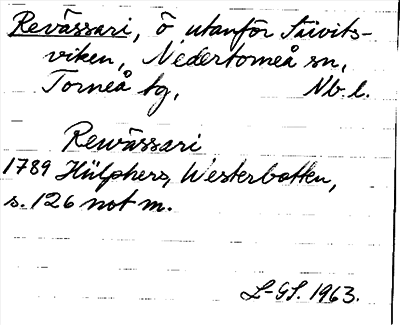 Revässari, ö utanför Säivits-
viken, Nedertorneå sn,
Torneå tg, Nb. l.
Rewässari
1789 Hülphers, Westerbotten,
s. 126 not m.
L-GS. 1963.